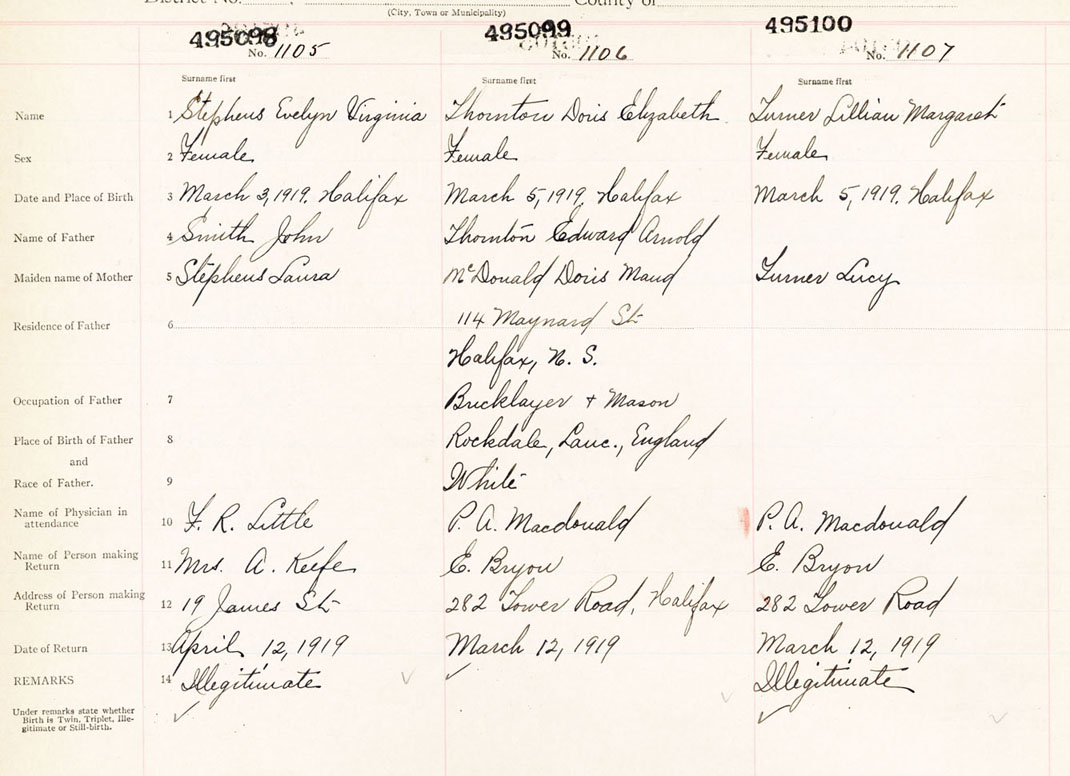 District No. County of
(City, Town or Municipality)
495098 495099 495100
No. 1105 No. 1106 No. 1107
Surname first Surname first Surname first
Name 1 Stephens Evelyn Virginia Thornton Doris Elizabeth Turner Lillian Margaret
Sex 2 Female Female Female
Date and Place of Birth 3 March 3, 1919. Halifax March 5, 1919. Halifax March 5, 1919. Halifax
Name of Father 4 Smith John Thornton Edward Arnold
Maiden name of Mother 5 Stephens Laura McDonald Doris Maud Turner Lucy
Residence of Father 6 114 Maynard St
Halifax, N. S.
Occupation of Father 7 Bricklayer + Mason
Place of Birth of Father 8 Rockdale, Lanc., England
and
Race of Father. 9 White
Name of Physician in
attendance 10 F. R. Little P. A. Macdonald P. A. Macdonald
Name of Person making
Return 11 Mrs. A. Keefe E. Bryon E. Bryon
Address of Person making
Return 12 19 James St 282 Tower Road, Halifax 282 Tower Road
Date of Return 13 April 12, 1919 March 12, 1919 March 12, 1919
REMARKS 14 Illegitimate Illegitimate
Under remarks state whether
Birth is Twin, Triplet, Ille-
gitimate or Still-birth.